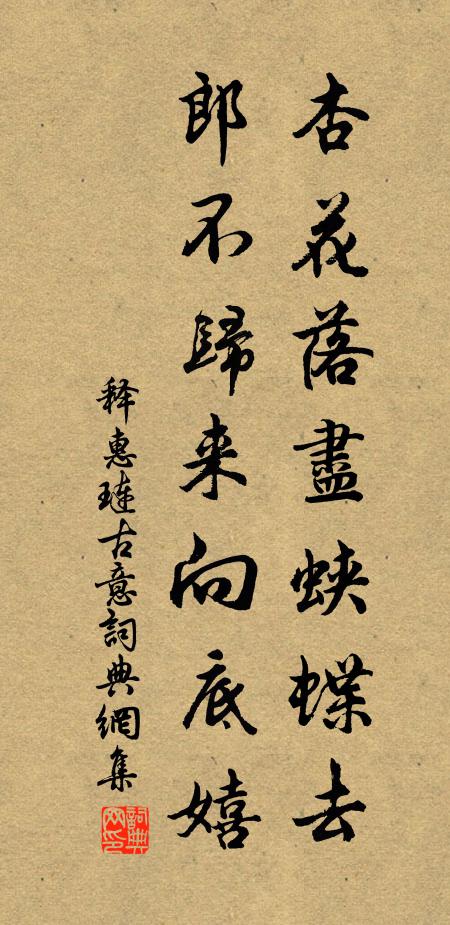 杏花落盡蛺蝶去
郎不歸来向底嬉
释惠璉古意詞典網集
詞典网印